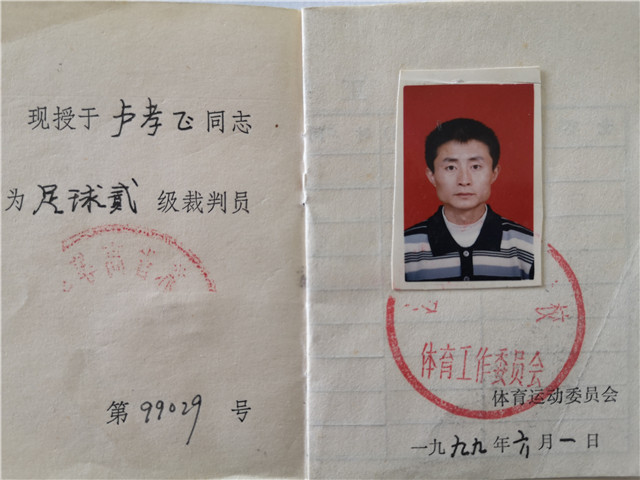 现授于卢孝飞同志
为足球贰级裁判员
第99029号
体育工作委员会
体育运动委员会
一九九九年六月一日